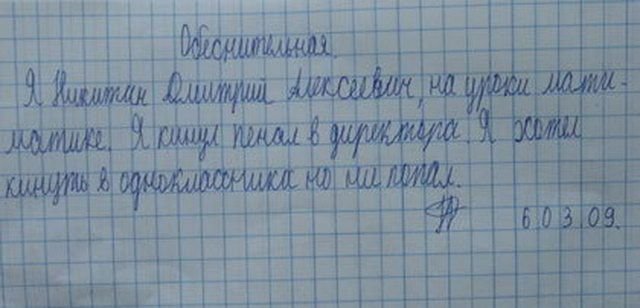 Обеснительная.
Я Никитин Дмитрий Алексеевич, на уроки мати-
матике. Я кинул пенал в директора. Я хотел
кинуть в одноклассника но ни попал.
6.03.09.